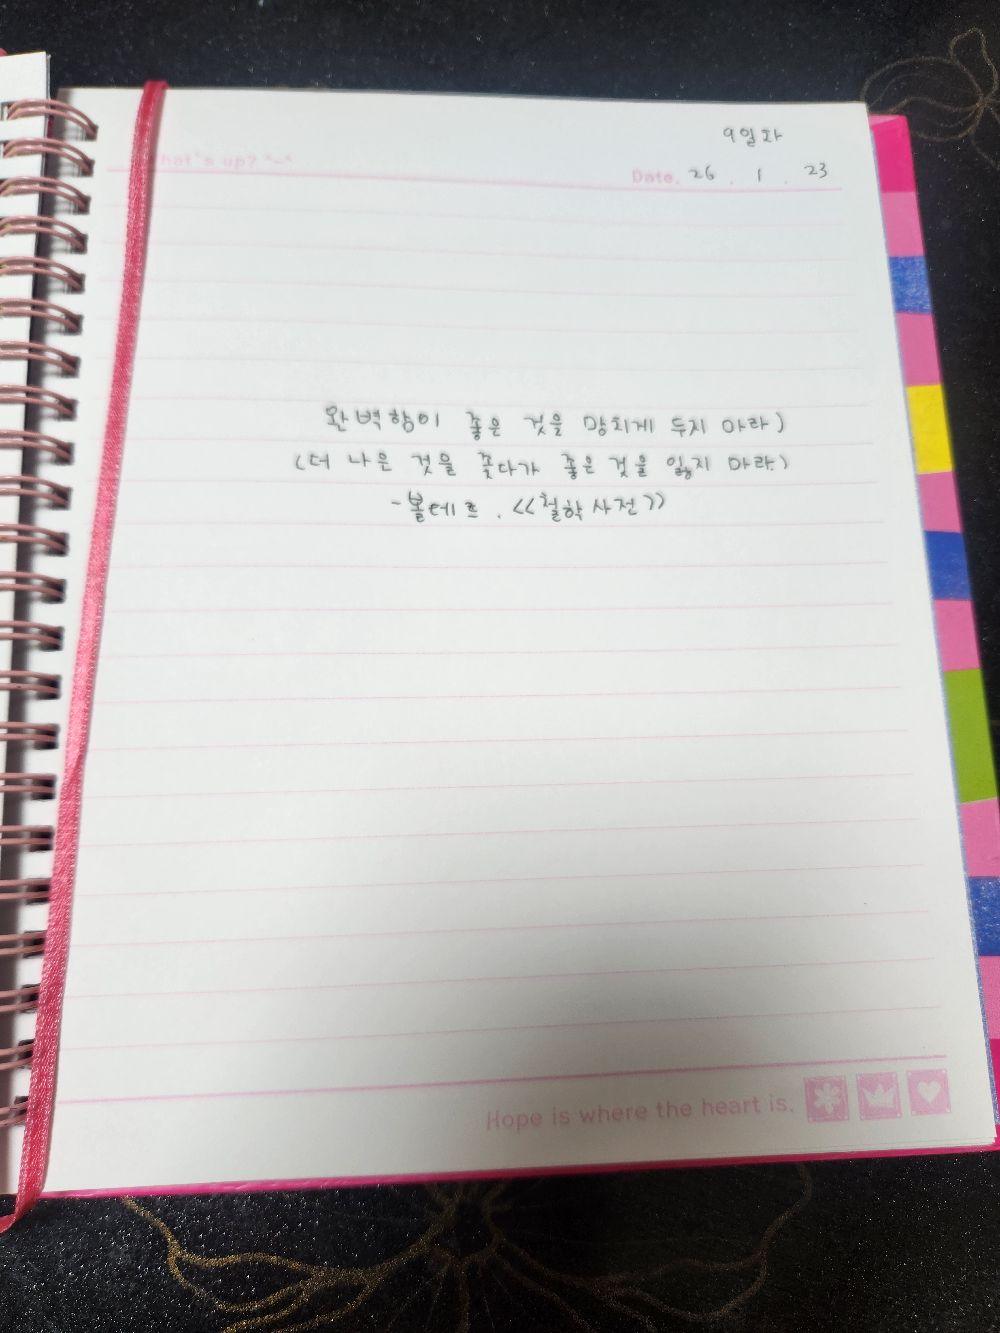 9일차
hat's up? ^-^
Date. 26 . 1 . 23
완벽함이 좋은 것을 망치게 두지 마라)
(더 나은 것을 쫓다가 좋은 것을 잃지 마라)
- 볼테르. <<철학사전>>
Hope is where the heart is.